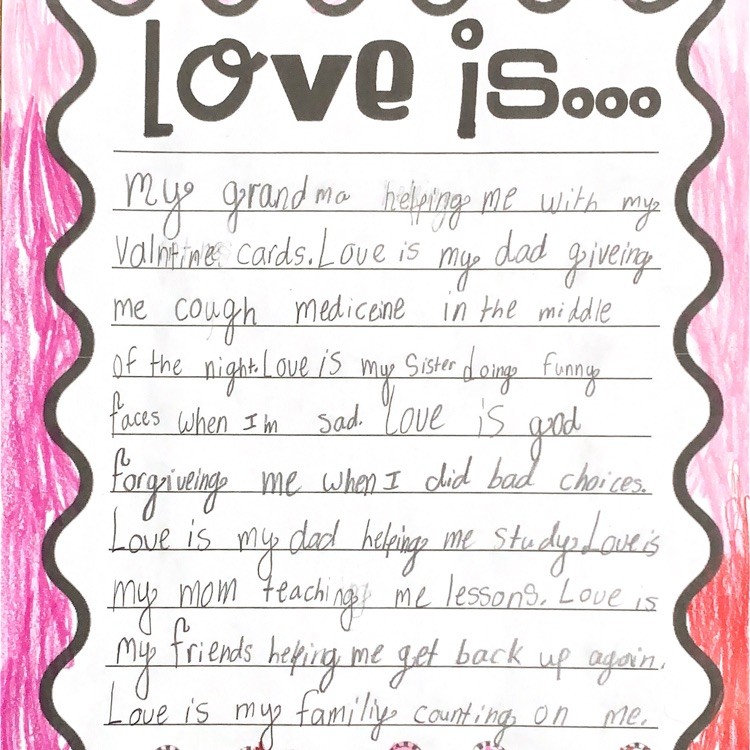 Love is...
My grandma helping me with my
Valntine cards. Love is my dad giveing
me cough mediceine in the middle
of the night. Love is my Sister doing funny
faces when I'm sad. Love is god
forgiveing me when I did bad choices.
Love is my dad helping me study. Love is
my mom teaching me lessons. Love is
my friends helping me get back up again.
Love is my familiy counting on me.